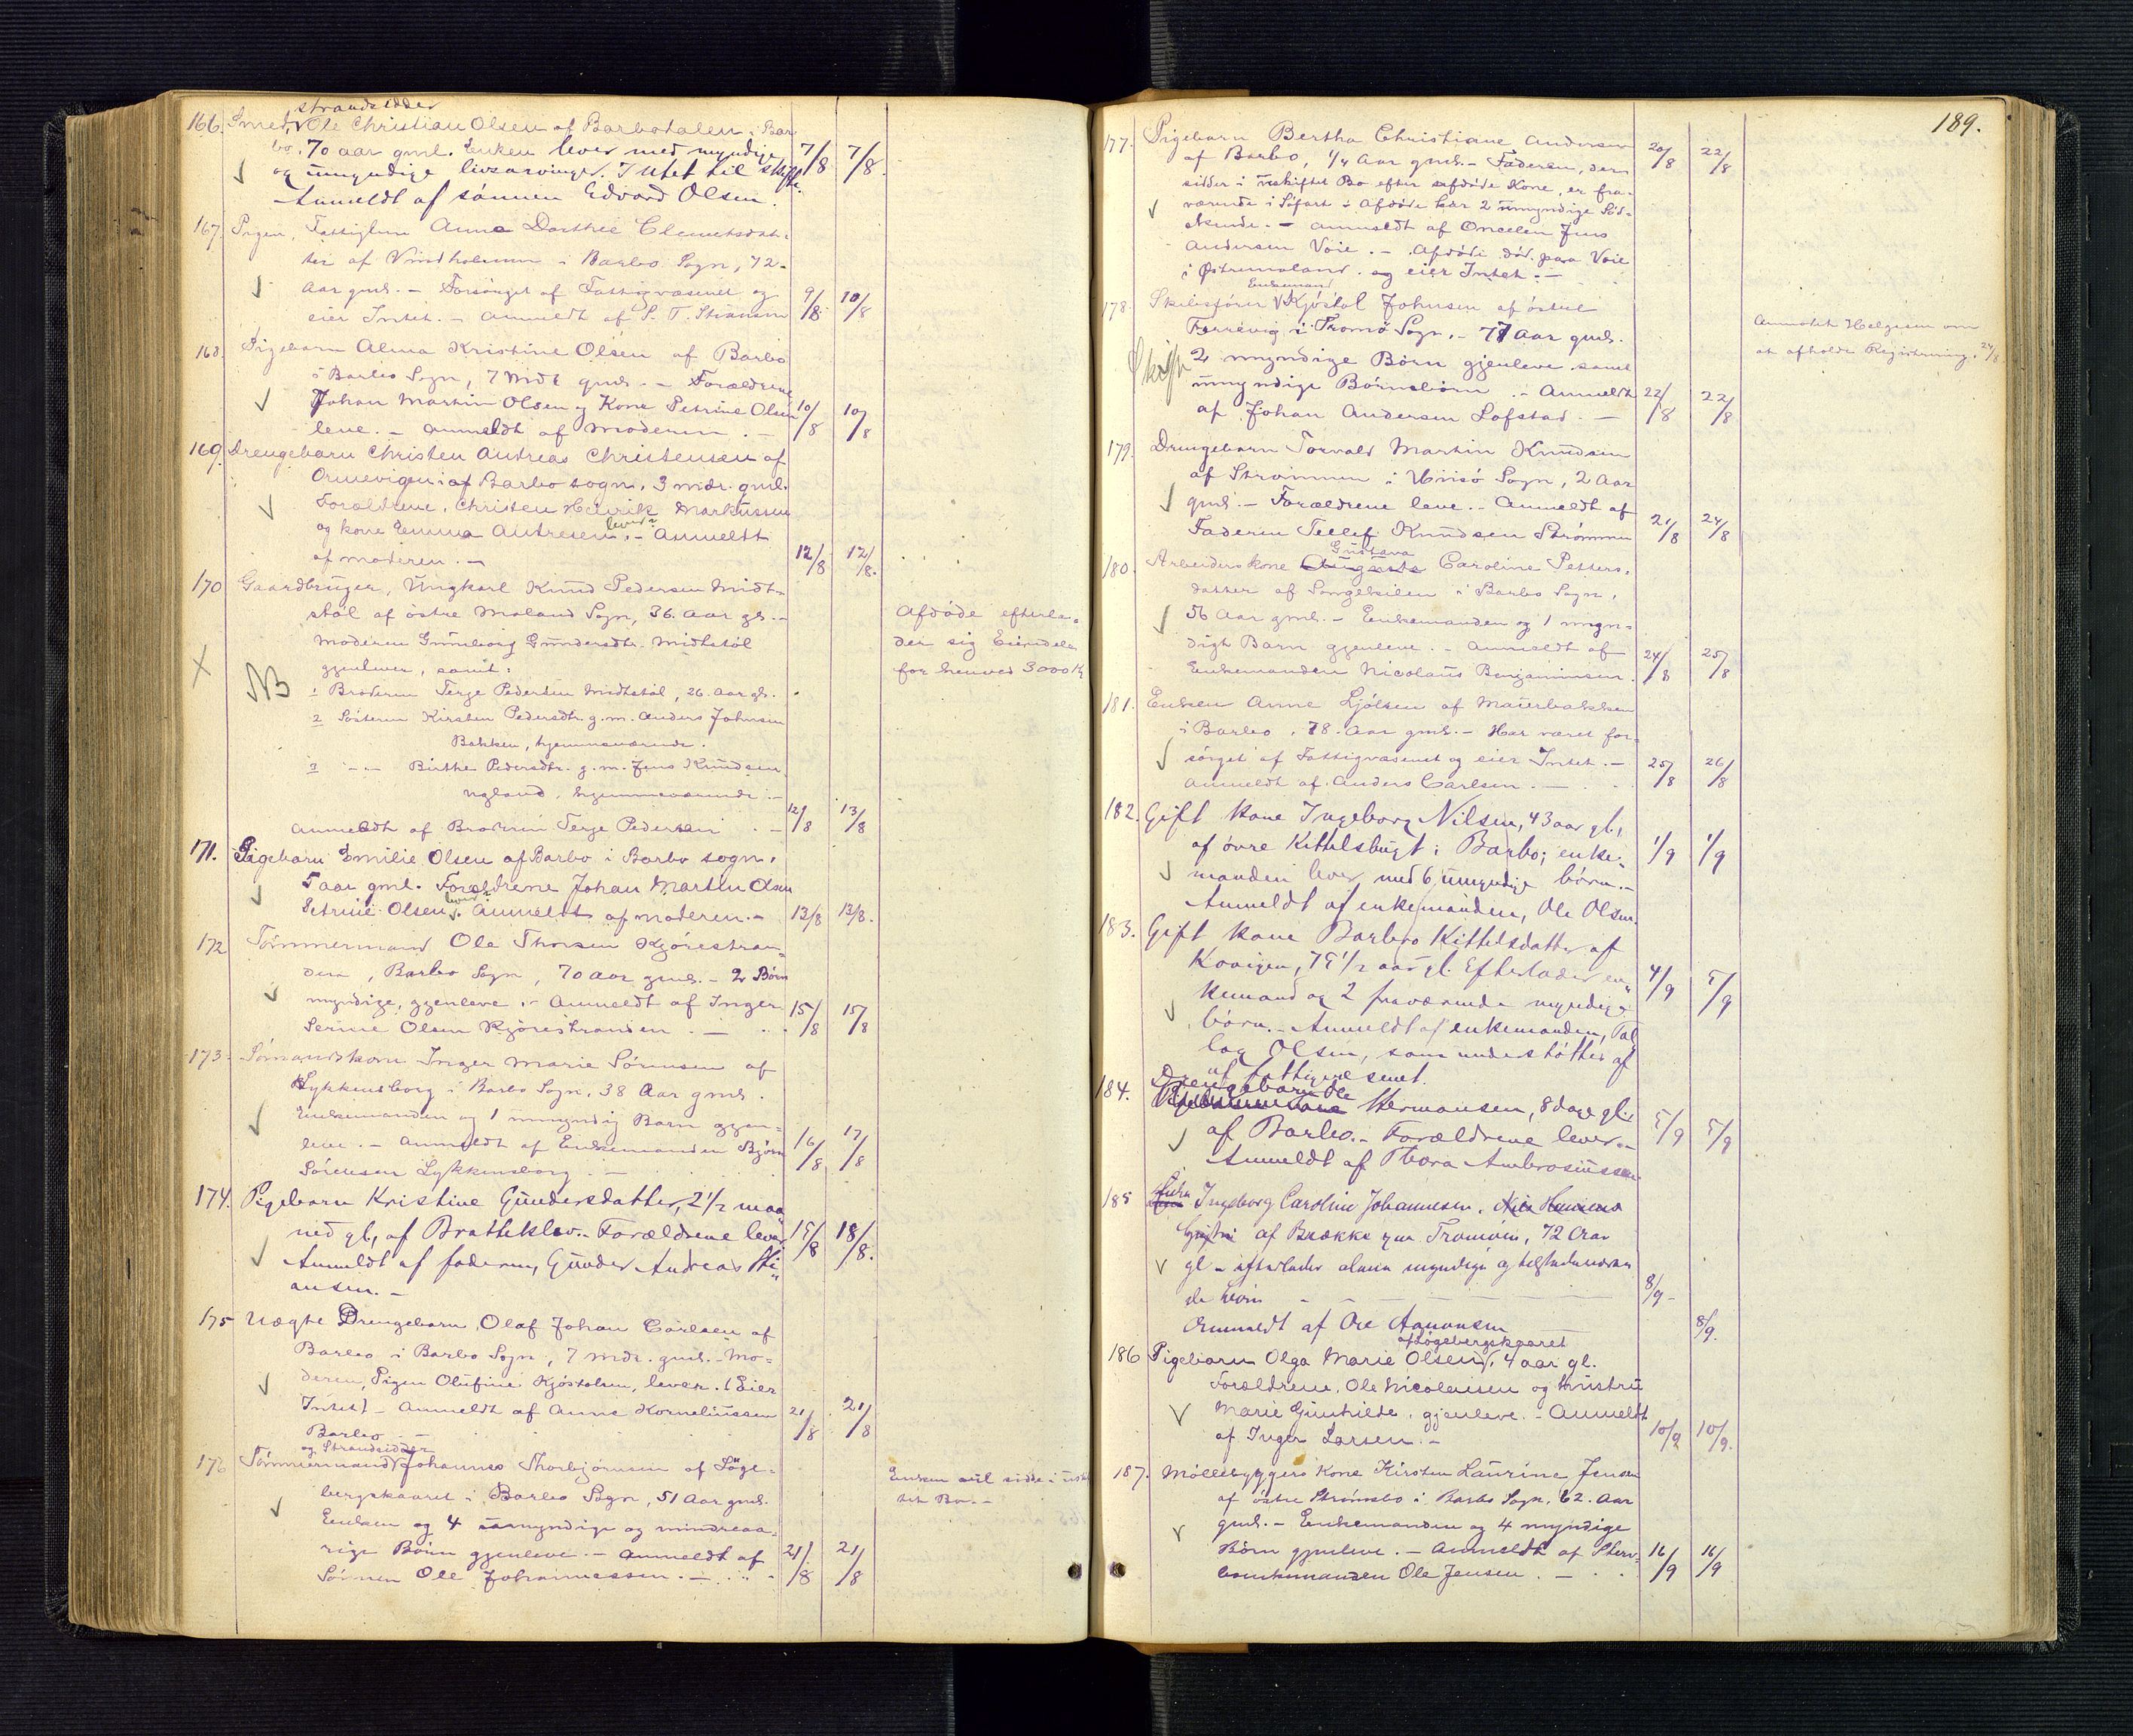 strandsidder
166. Smed, Ole Christian Olsen af Barbodalen i Bar-
bo, 70 aar gml. Enken lever med myndige
og umyndige livsarvinger. Intet til skifte. 7/8 7/8.
Anmeldt af sønnen Edvard Olsen.
167. Pigen, Fattiglem Anne Dorthee Clemetsdat-
ter af Vindholmen i Barbo Sogn, 72
Aar gml. – Forsørget af Fattigvæsenet og
eier Intet. – Anmeldt af S. T. Stiansen 9/8 10/8
168. Pigebarn Alma Kristine Olsen af Barbo
i Barbo Sogn, 7 Mdr gml. – Forældrene
Johan Martin Olsen og Kone Petrine Olsen 10/8 10/8
leve. – Anmeldt af Moderen. –
169. Drengebarn Christen Andreas Christensen af
Ormevigen i af Barbo sogn, 3 mdr. gml.
Forældrene, Christen Henrik Markussen
og kone Emma Andresen, lever. – Anmeldt
af moderen. – 12/8 12/8.
170 Gaardbruger, Ungkarl Knud Pedersen Midt-
støl af østre Moland Sogn, 36 Aar gl. –
Moderen Gunborg Gundersdtr. Midtstøl
gjenlever, samt:
NB
1 Broderen Terge Pedersen Midtstøl, 26 Aar gl.
2 Søsteren Kirsten Pedersdtr. g.m. Anders Johnsen
Bakken, hjemmeværende.
3 — Birthe Pedersdtr. g.m. Jens Knudsen
Ugland, hjemmeværende. –
Anmeldt af Broderen Terge Pedersen . – 12/8 13/8
Afdøde efterla-
der sig Eiendele
for henved 3000 Kr
171. Pigebarn Emilie Olsen af Barbo i Barbo sogn,
5 aar gml. Forældrene Johan Martin Olsen
Petrine Olsen lever. Anmeldt af moderen. – 13/8 13/8.
172 Tømmermand Ole Thorsen Kjørestran-
den, Barbo Sogn, 70 Aar gml. – 2 Børn
myndige, gjenleve. – Anmeldt af Inger
Serine Olsen Kjørestranden . – 15/8 15/8
173. Sømandskone Inger Marie Sørensen af
Lykkensborg i Barbo Sogn, 38 Aar gml.
Enkemanden og 1 umyndig Barn gjen-
leve. – Anmeldt af Enkemanden Bjørn 16/8 17/8
Sørensen Lykkensborg. –
174. Pigebarn Kristine Gundersdatter, 2 1/2 maa-
ned gl, af Bratteklev. Forældrene lever 15/8 18/8.
Anmeldt af faderen, Gunder Andreas Sti-
ansen. –
175 Uægte Drengebarn Olaf Johan Carlsen af
Barbo i Barbo Sogn, 7 Mdr. gml. – Mo-
deren, Pigen Olufine Kjøstolsen, lever. (Eier
Intet) – Anmeldt af Anne Kornelinssen 21/8 21/8
Barbo. –
og Strandsidder
176 Tømmermand Johannes Thorbjørnsen af Løge-
bergskaaret i Barbo Sogn, 51 Aar gml.
Enken og 4 umyndige og mindreaa-
rige Børn gjenleve. – Anmeldt af 21/8 21/8
Sønnen Ole Johannessen. –
Enken vil sidde i uskif-
tet Bo. –
189.
177. Pigebarn Bertha Christiane Andersen
af Barbo, 1/4 Aar gml. – Faderen, der 20/8 22/8
sidder i uskiftet Bo efter afdøde Kone, er fra-
værende i Søfart. Afdøde har 2 umyndige Sød-
skende. – Anmeldt af Onkelen Jens
Andersen Voie. – Afdøde død paa Voie
i Østremoland og eier Intet. –
Enkemand
178. Skibsfører Kjøstol Johnsen af østre
Færevig i Tromø Sogn, – 77 Aar gml.
Skifte
2 myndige Børn gjenleve samt
umyndige Børnebørn. – Anmeldt 22/8 22/8
af Johan Andersen Lofstad. –
Anmodet Helgesen om
at afholde Registrering. 24/8
179. Drengebarn Torvald Martin Knudsen
af Strømmen i Hisø Sogn, 2 Aar
gml. – Forældrene leve. – Anmeldt af
Faderen Tellef Knudsen Strømmen 21/8 24/8
Gustava
180. Arbeiderskone Augusta Caroline Petters-
datter af Songekilen i Barbo Sogn,
56 Aar gml. – Enkemanden og 1 myn-
digt Barn gjenleve. – Anmeldt af
Enkemanden Nicolaus Benjaminsen. 24/8 25/8
181. Enken Anne Ljølsen af Maurbakken
i Barbo, 78 Aar gml. – Har været for-
sørget af Fattigvæsenet og eier Intet. – 25/8 26/8
Anmeldt af Anders Carlsen. –
182. Gift kone Ingeborg Nilsen, 43 aar gl.,
af øvre Kittelsbugt i Barbo; enke- 1/9 1/9
manden lever med 6 umyndige børn. –
Anmeldt af enkemanden, Ole Olsen.
183. Gift kone Barbro Kittelsdatter af
Kovigen, 75 1/2 aar gl. Efterlader en-
kemand og 2 fraværende myndige 4/9 5/9
børn. – Anmeldt af enkemanden, Tal-
lag Olsen, som understøttes af
af fattigvæsenet.
Drengebarn Ole
184. Hermansen, 8 dage gl.
af Barbo. – Forældrene lever. – 5/9 5/9
Anmeldt af Thora Ambrosiussen
185 Enke Ingeborg Caroline Johannesen,
af Brække paa Tromøen, 72 Aar
gl – efterlader alene myndige og tilstedeværen
de børn – 8/9 –
Anmeldt af Ole Aanonsen 8/9.
af Løgebergskaaret
186 Pigebarn Olga Marie Olsen, 4 aar gl.
Forældrene, Ole Nicolaisen og hustru
Marie Gunhilde, gjenleve. – Anmeldt
af Inger Larsen. – 10/9 10/9.
187. Møllebyggers Kone Kirsten Laurine Jensen
af østre Strømsbo i Barbo Sogn, 62 Aar
gml. – Enkemanden og 4 myndige
Børn gjenleve. – Anmeldt af Sterv-
boenkemanden Ole Jensen. – 16/9 16/9